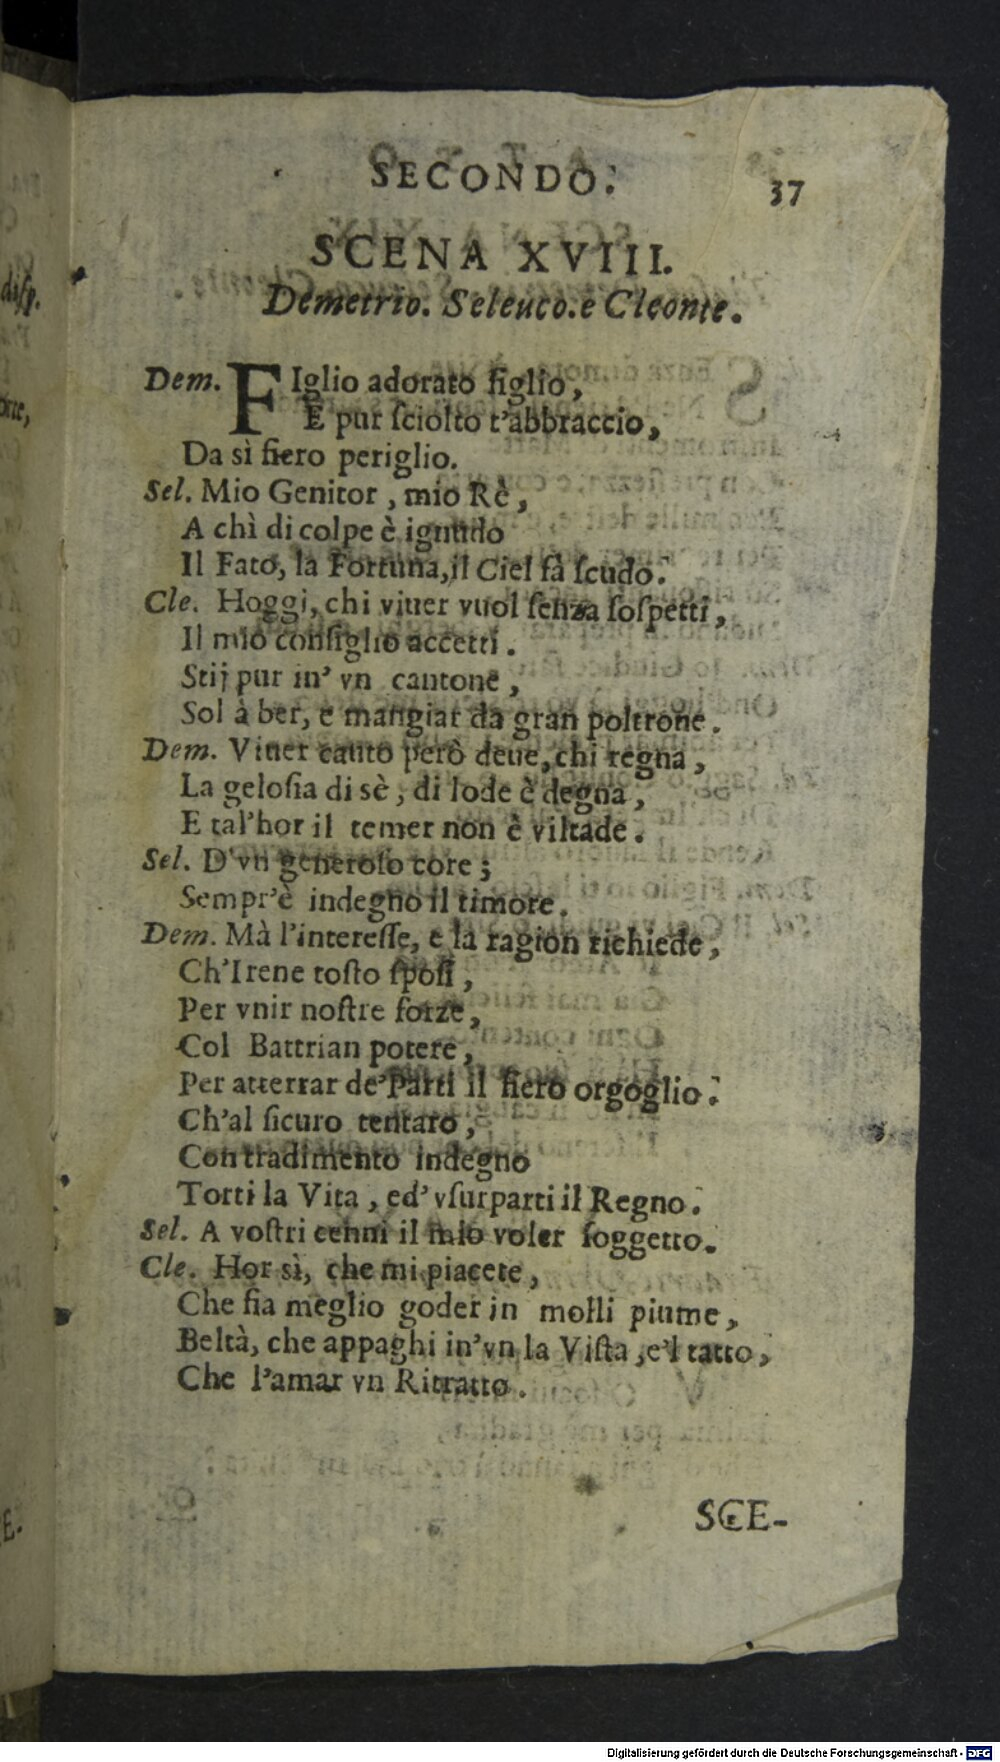 SECONDO. 37
SCENA XVIII.
Demetrio. Seleuco. e Cleonte.
Dem. FIglio adorato figlio,
E pur ſciolto t'abbraccio,
Da sì fiero periglio.
Sel. Mio Genitor, mio Rè,
A chì di colpe è ignudo
Il Fato, la Fortuna, il Ciel fà ſcudo.
Cle. Hoggi, chi viuer vuol ſenza ſoſpetti,
Il mio conſiglio accetti.
Stij pur in' vn cantone,
Sol à ber, e mangiar da gran poltrone.
Dem. Viuer cauto però deue, chi regna,
La geloſia di sè, di lode è degna,
E tal'hor il temer non è viltade.
Sel. D'vn generoſo core;
Sempr'è indegno il timore.
Dem. Mà l'intereſſe, e la ragion richiede,
Ch'Irene toſto ſpoſi,
Per vnir noſtre forze,
Col Battrian potere,
Per atterrar de'Parti il fiero orgoglio.
Ch'al ſicuro tentaro,
Con tradimento indegno
Torti la Vita, ed' vſurparti il Regno.
Sel. A voſtri cenni il mio voler ſoggetto.
Cle. Hor sì, che mi piacete,
Che fia meglio goder in molli piume,
Beltà, che appaghi in'vn la Viſta, e'l tatto,
Che l'amar vn Ritratto.
SCE-
diſp.
orte,
E-
Digitalisierung gefördert durch die Deutsche Forschungsgemeinschaft - DFG